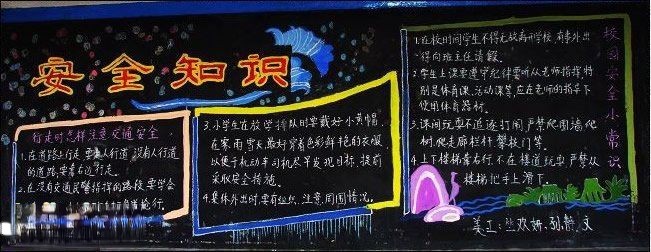 安全知识
行走时怎样注意交通安全
1.在道路上行走,要走人行道,没有人行道
的道路,要靠右边行走。
2.在没有交通民警指挥的路段,要学会
3.小学生在放学排队时要戴好小黄帽,
在雾、雨、雪天最好穿着色彩鲜艳的衣服,
以便于机动车司机尽早发现目标,提前
采取安全措施。
4.集体外出时,要有组织,注意周围情况。
校园安全小常识
1.在校时间学生不得无故离开学校,有事外出
得向班主任请假。
2.学生上课要遵守纪律要听从老师指挥,特
别是体育课、活动课等,应在老师的指导下
使用体育器材。
3.课间玩耍不追逐打闹,严禁爬围墙,爬
树,爬走廊栏杆,攀校门等。
4.上下楼梯靠右行,不在楼道玩耍,严禁从
楼梯把手上滑下。
美工: